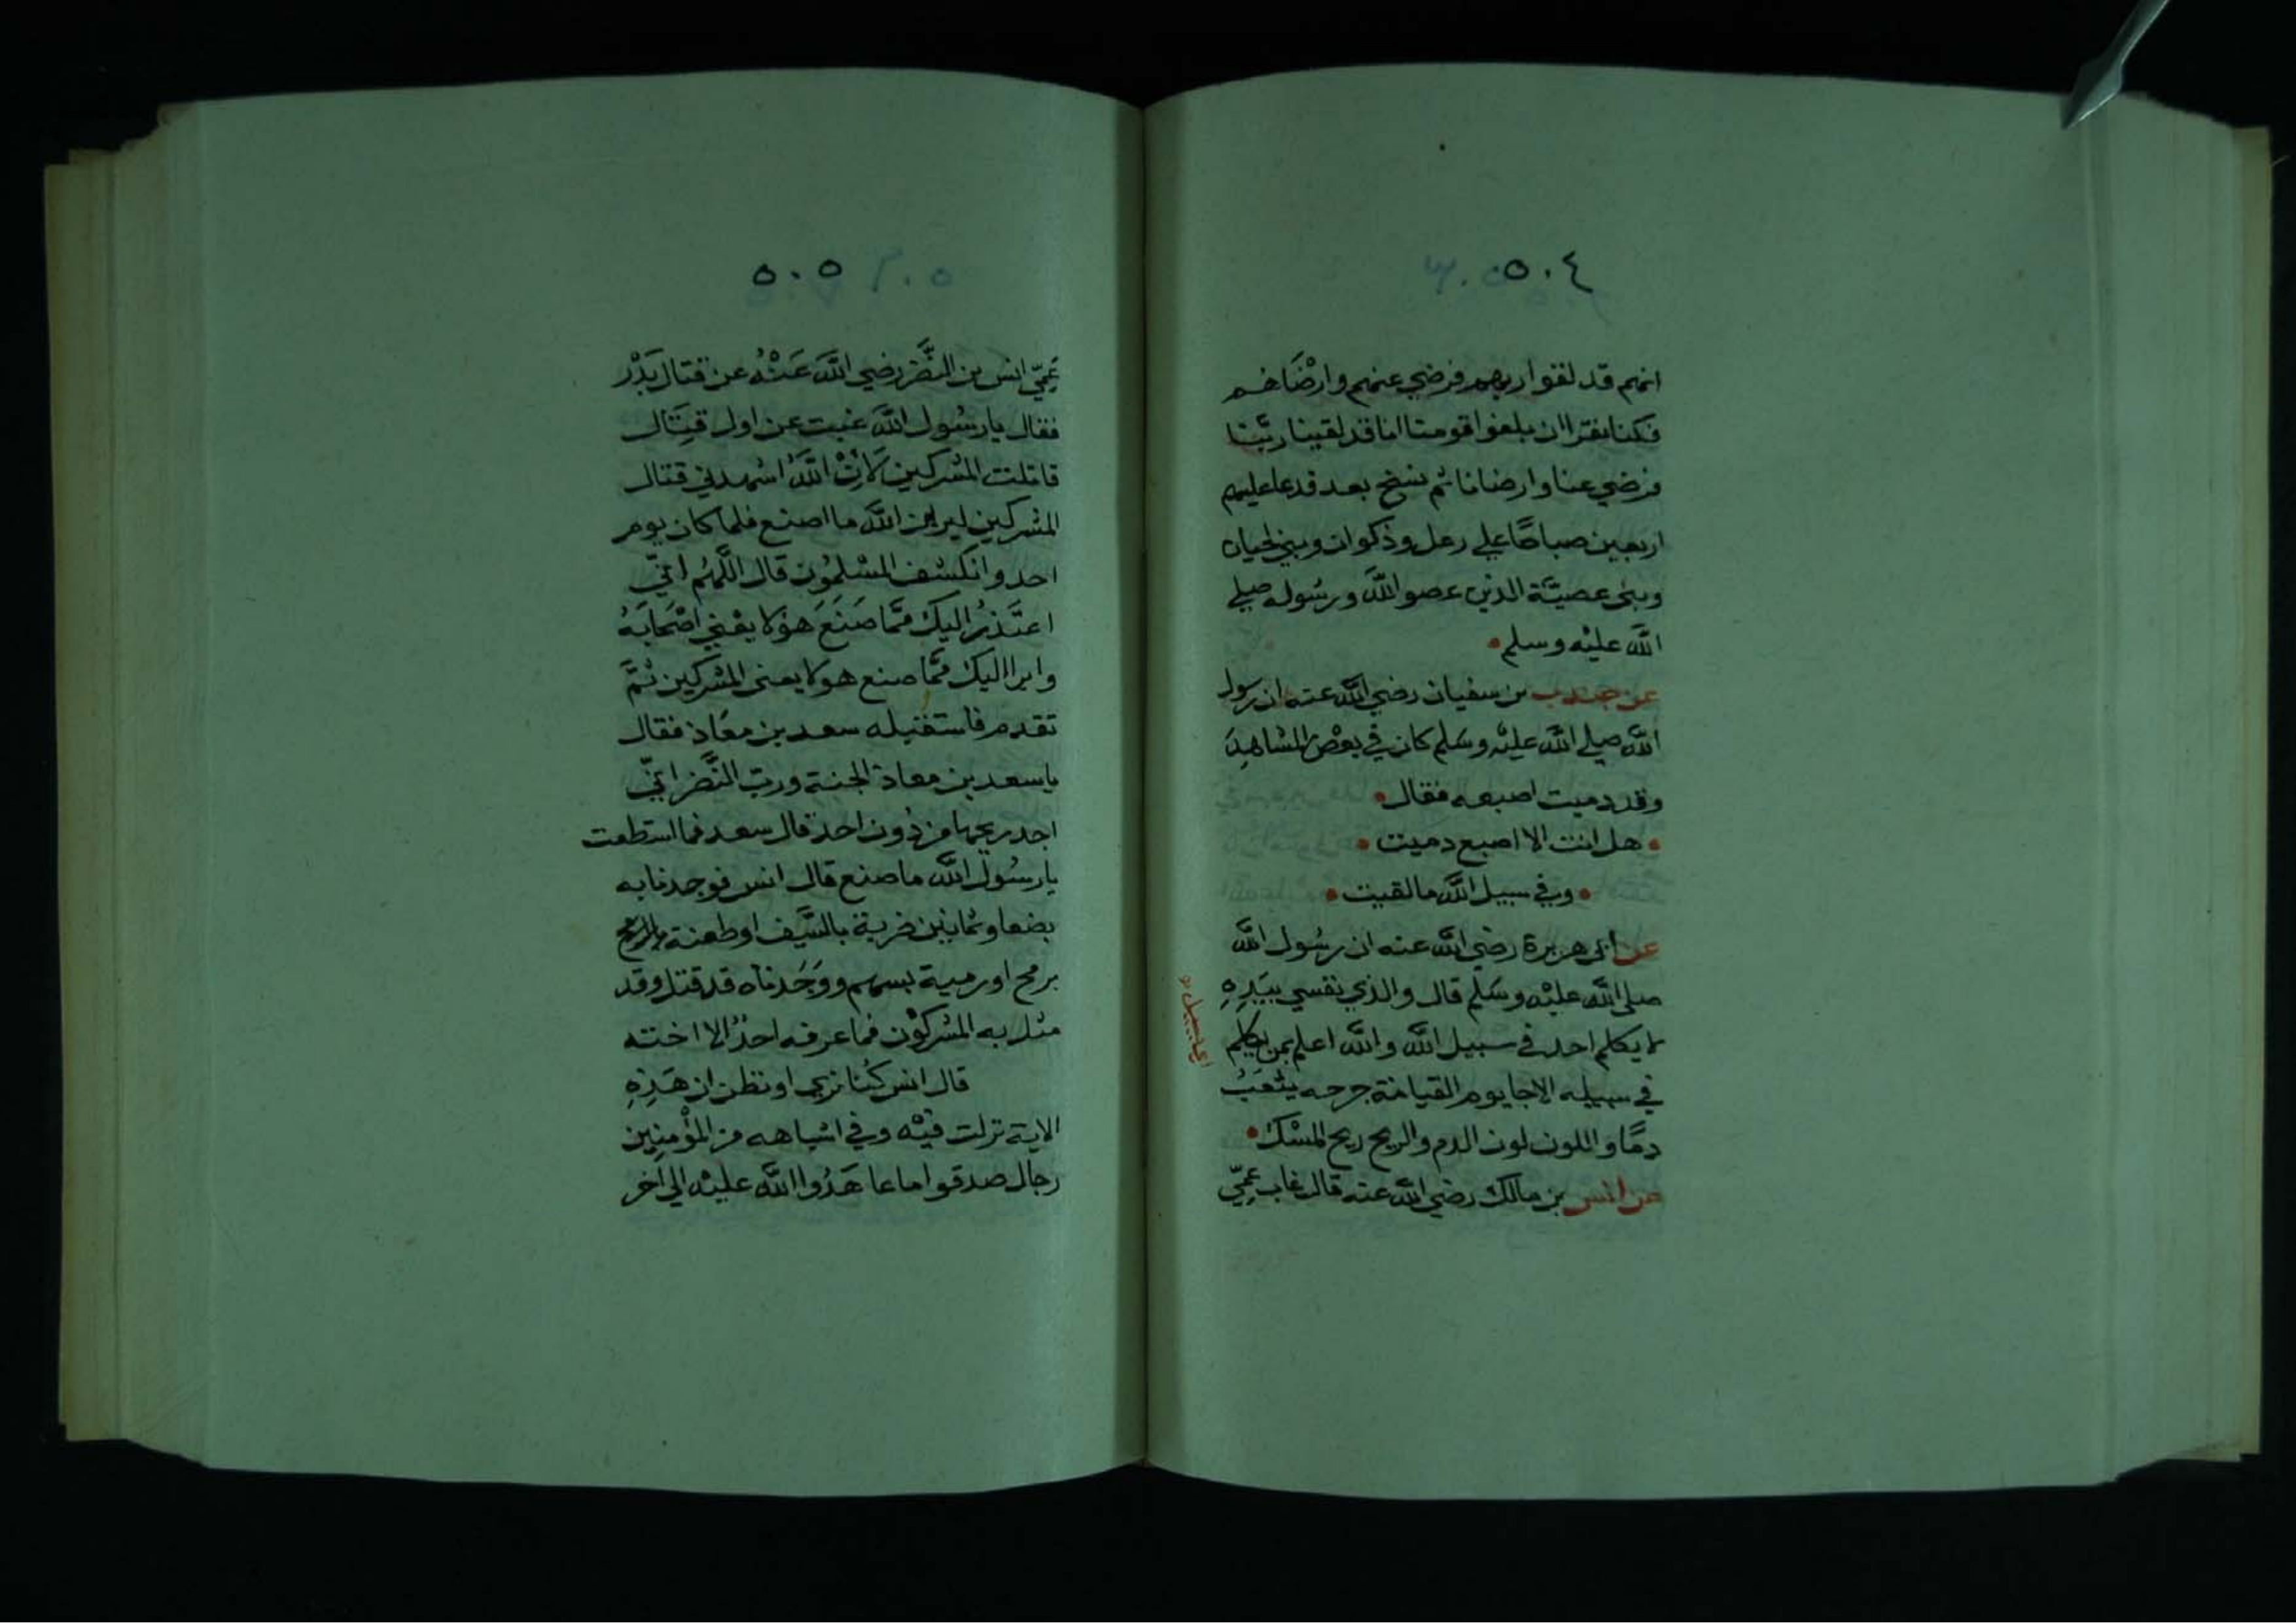 ٥٠٤
انهم قد لقوا ربهم فرضي عنهم وارْضَاهُم
فكنا نقرا ان بلغوا قومنا انا قد لقينا ربَّنا
فرضي عنا وارضانا ثم نسخ بعد فدعا عليهم
اربعين صباحًا علي رعل وذكوان وبني لحيان
وبني عصيَّة الذين عصو اللَّه ورسُوله صلي
اللَّه عليْه وسلم
عن جندب بن سفيان رضي اللَّه عنه ان رسول
اللَّه صلي اللَّه عليْه وسَلم كان في بعْض المشاهِدَ
وقد دميت اصبعه فقال
هل انت الا اصبع دميت
وفي سبيل اللَّه ما لقيت
عن ابي هريرة رضي اللَّه عنه ان رسُول اللَّه
صلي اللَّه عليْه وسَلم قال والذي نفسي بيَدِهِ
لا يكلم احد في سبيل اللَّه واللَّه اعلم بمن يكلم
في سبيله الا جا يوم القيامة جرحه يثْعَبُ
دمًا واللون لون الدم والريح ريح المسْك
عن انس بن مالك رضي اللَّه عنه قال غاب عمِّي
٥٠٥
عَمِّي انس بن النَّضر رضي اللَّه عَنْهُ عن قتال بَدْر
فقال يا رسُول اللَّه غبت عن اول قِتَال
قاتلت المشركين لانْ اللَّهُ اشهدني قتال
المشركين ليرين اللَّه ما اصنع فلما كان يوم
احد وانكشف المسْلمُون قال اللَّهُم انِّي
اعتَذرُ اليك ممَّا صَنَعَ هَؤلا يعْني اصْحَابَهُ
وابرا اليك ممَّا صنع هولا يعني المشركين ثمَّ
تقدم فاستقبله سعد بن معَاذ فقال
يا سعد بن معاذ الجنة وربّ النَّضر انِّي
اجد ريحها من دُون احد قال سعد فما استطعت
يا رسُول اللَّه ما صنع قال انس فوجدنا به
بضعا وثمانين ضربة بالسَّيف او طعنة بالرمح
برمح او رمية بسهم ووَجَدناه قد قتل وقد
مثل به المشركوْن فما عرفه احدٌ الا اخته
قال انس كُنا نري او نظن ان هَذِهِ
الاية نزلت فيْه وفي اشباهه من المؤْمِنِين
رجال صدقوا ما عا هَدُوا اللَّه عليْه الي آخر